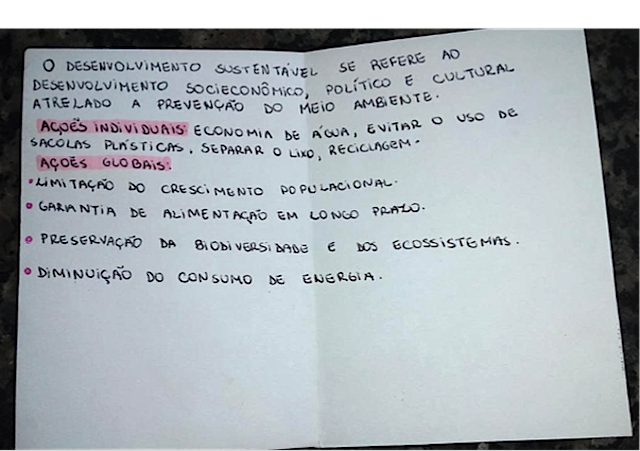 O DESENVOLVIMENTO SUSTENTÁVEL SE REFERE AO
DESENVOLVIMENTO SOCIECONÔMICO, POLÍTICO E CULTURAL
ATRELADO A PREVENÇÃO DO MEIO AMBIENTE.
AÇÕES INDIVIDUAIS: ECONOMIA DE ÁGUA, EVITAR O USO DE
SACOLAS PLÁSTICAS, SEPARAR O LIXO, RECICLAGEM.
AÇÕES GLOBAIS:
• LIMITAÇÃO DO CRESCIMENTO POPULACIONAL.
• GARANTIA DE ALIMENTAÇÃO EM LONGO PRAZO.
• PRESERVAÇÃO DA BIODIVERSIDADE E DOS ECOSSISTEMAS.
• DIMINUIÇÃO DO CONSUMO DE ENERGIA.